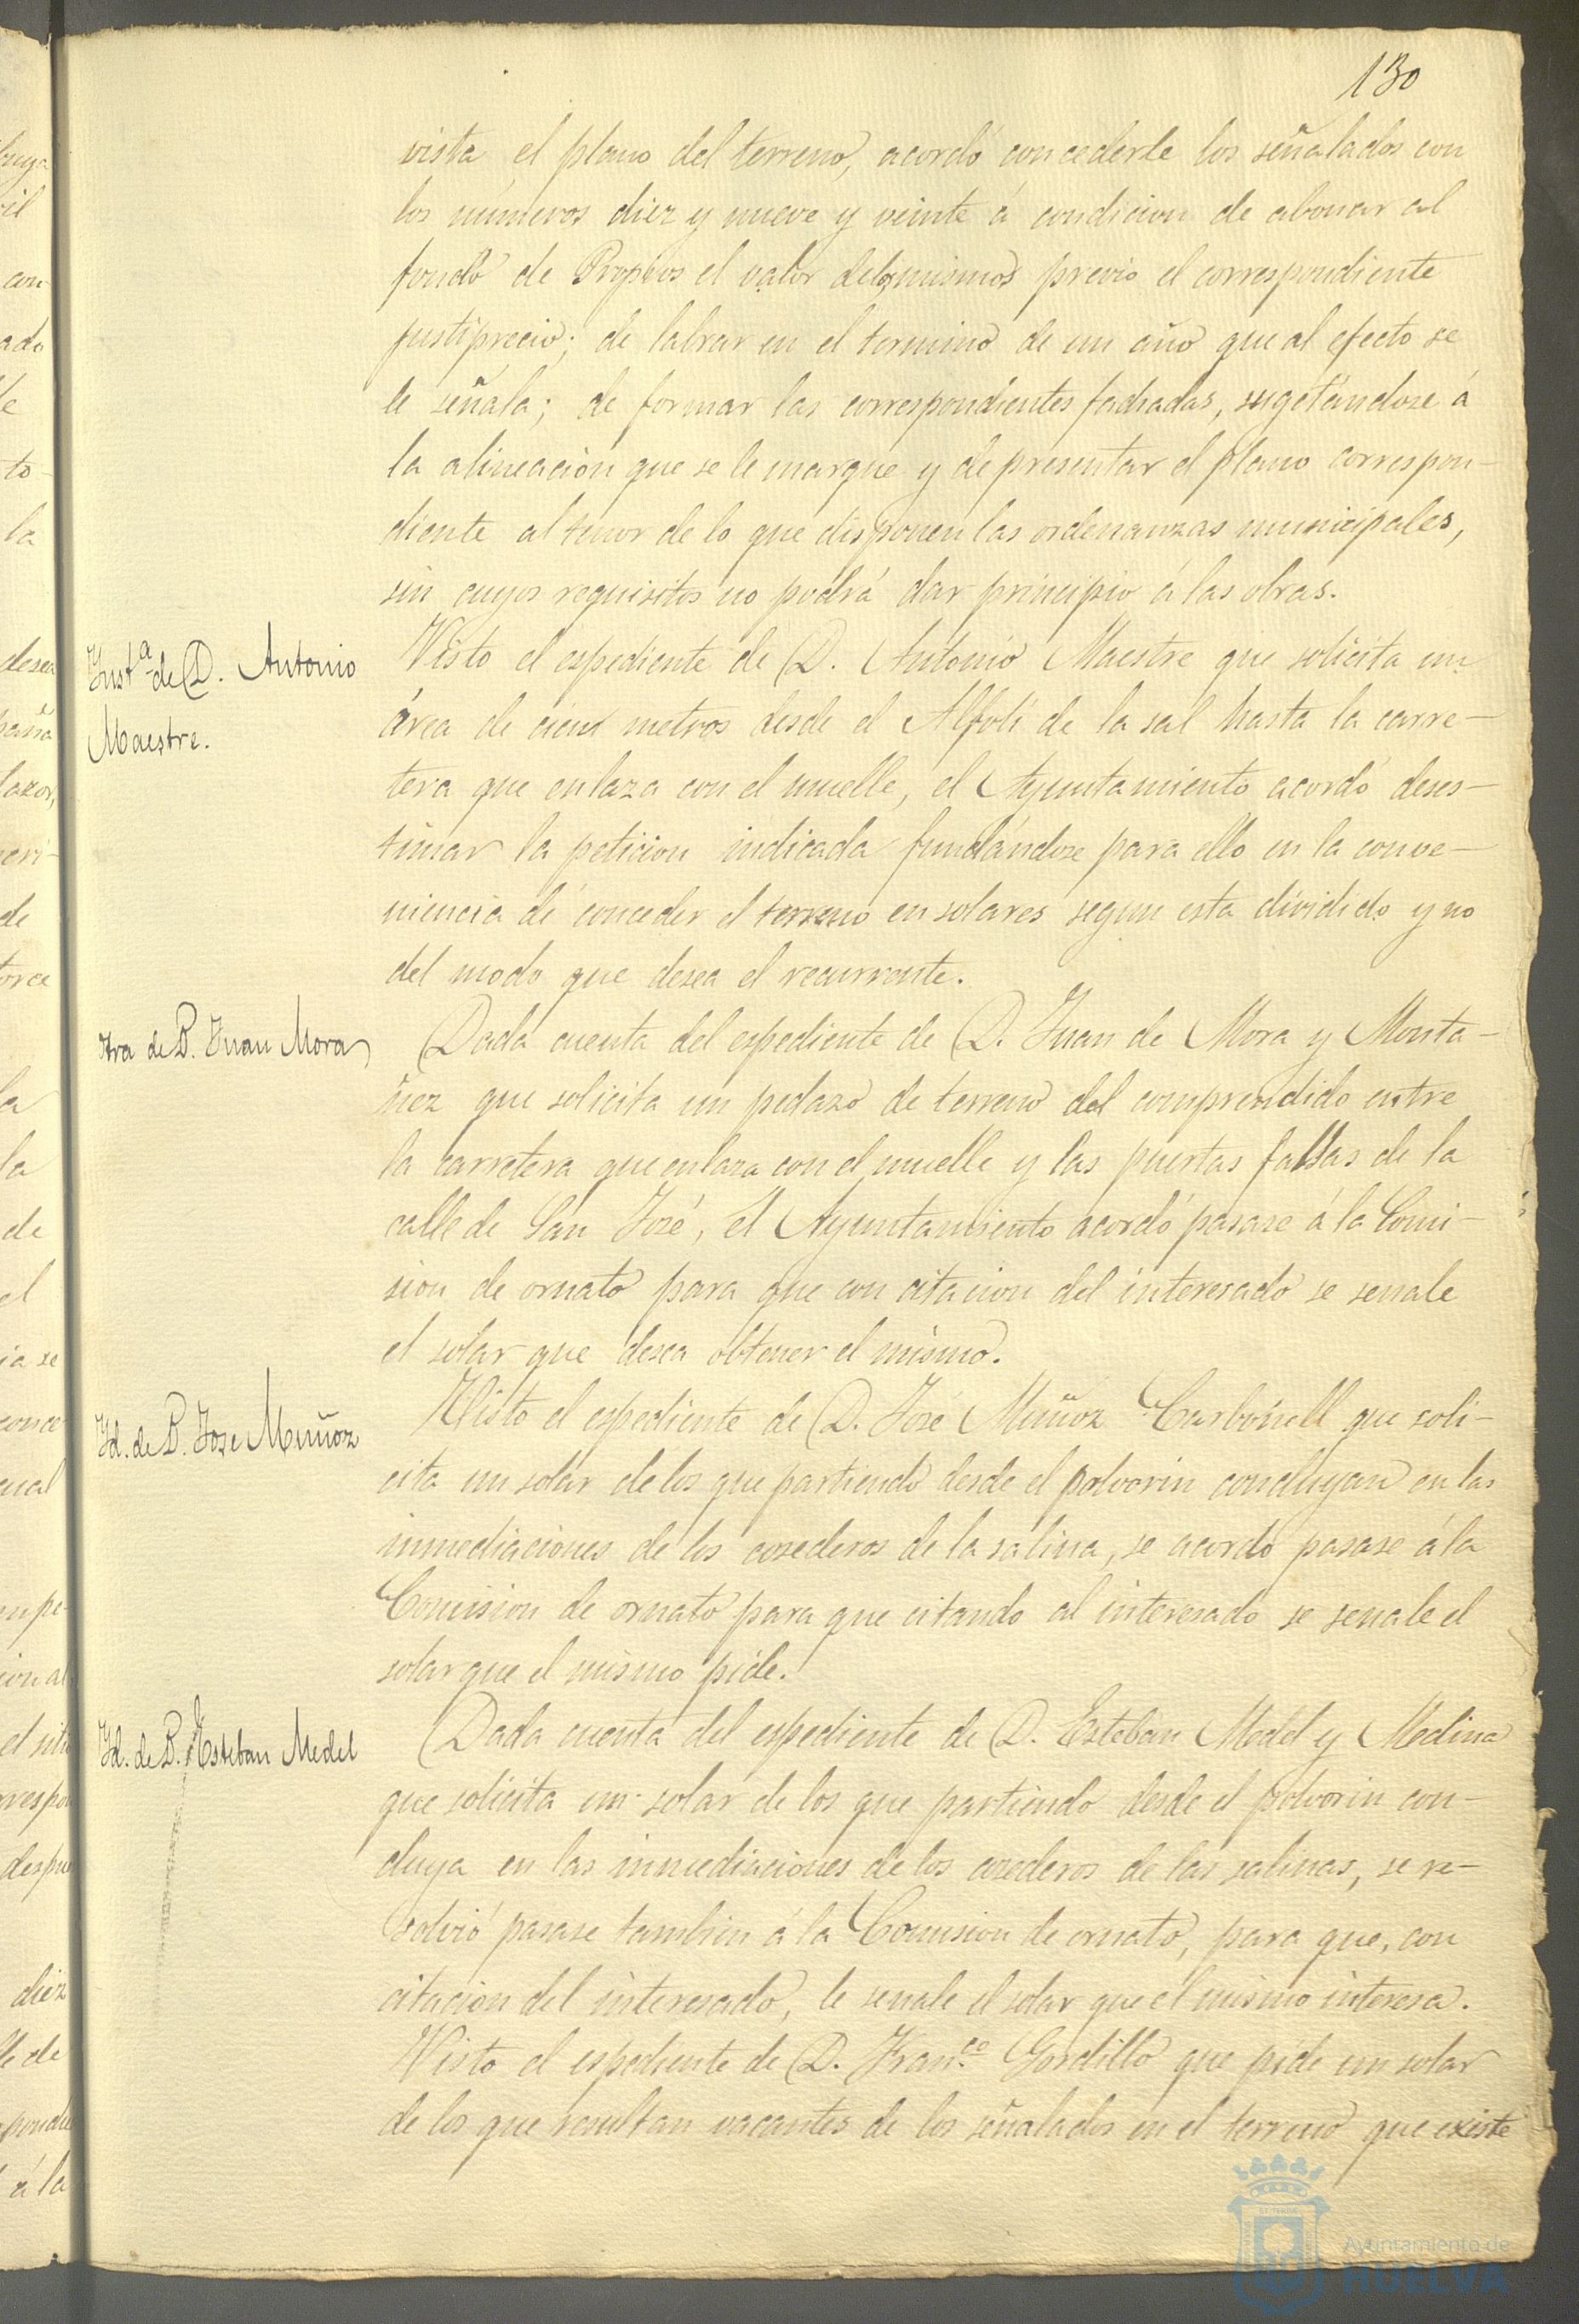 130
vista el plano del terreno, acordó concederle los señalados con
los números diez y nueve y veinte á condicion de abonar al
fondo de Propios el valor de los mismos previo el correspondiente
justiprecio; de labrar en el termino de un año que al efecto se
le señala; de formar las correspondientes fachadas, sugetándose á
la alineacion que se le marque y de presentar el plano correspon-
diente al tenor de lo que disponen las ordenanzas municipales,
sin cuyos requisitos no podrá dar principio á las obras.
Inst.ª de D. Antonio
Maestre.
Visto el espediente de D. Antonio Maestre que solicita un
área de cien metros desde el Alfolí de la sal hasta la carre-
tera que enlaza con el muelle, el Ayuntamiento acordó deses-
timar la peticion indicada fundándose para ello en la conve-
niencia de conceder el terreno en solares segun esta dividido y no
del modo que desea el recurrente.
Otra de D. Juan Mora
Dada cuenta del espediente de D. Juan de Mora y Monta-
ñez que solicita un pedazo de terreno del comprendido entre
la carretera que enlaza con el muelle y las puertas falsas de la
calle de San José, el Ayuntamiento acordó pasase á la Comi-
sion de ornato para que con citacion del interesado se senale
el solar que desea obtener el mismo.
Yd. de D. Jose Muñoz
Visto el espediente de D. José Muñoz Carbonell que soli-
cita un solar de los que partiendo desde el polvorin concluyan en las
inmediaciones de los cosederos de la salina, se acordó pasase á la
Comision de ornato para que citando al interesado se senale el
solar que el mismo pide.
Yd. de D. Esteban Medel
Dada cuenta del espediente de D. Esteban Medel y Medina
que solicita un solar de los que partiendo desde el polvorin con-
cluya en las inmediaciones de los cosederos de las salinas, se re-
solvió pasase tambien á la Comision de ornato, para que, con
citacion del interesado, le senale el solar que el mismo interesa.
Visto el espediente de D. Fran.co Gordillo que pide un solar
de los que resultan vacantes de los señalados en el terreno que existe
Ayuntamiento de
HUELVA